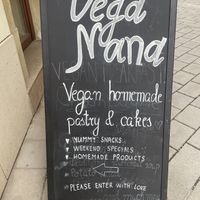 Vega
Nana
Vegan homemade
pastry & cakes
♥ Yummy snacks
♥ Weekend specials
♥ Homemade products
Please enter with love